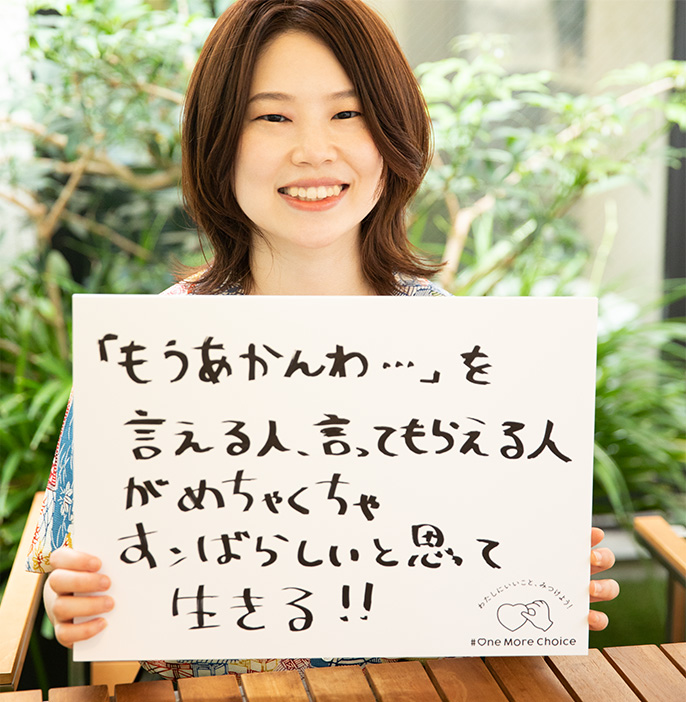 「もうあかんわ…」を
言える人、言ってもらえる人
がめちゃくちゃ
すンばらしいと思って
生きる!!
わたしにいいこと、みつけよう!
#One More Choice